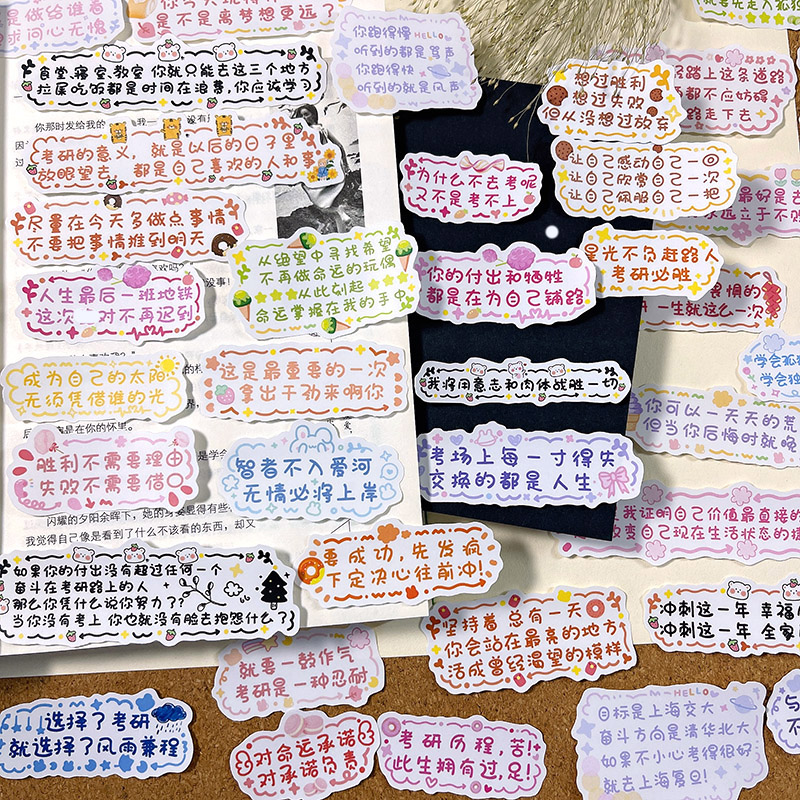 是做给谁看
求问心无愧
是不是离梦想更远了
食堂.寝室.教室 你就只能去这三个地方
拉屎吃饭都是时间在浪费,你应该学习
你跑得慢 HELLO
听到的都是骂声
你跑得快
听到的都是风声
想过胜利
想过失败
但从没想过放弃
踏上这条道路
都不应妨碍
路走下去
考研的意义, 就是以后的日子里
放眼望去, 都是自己喜欢的人和事
为什么不去考呢
又不是考不上
让自己感动自己一回
让自己欣赏自己一次
让自己佩服自己一把
最好是去
永远立于不败
尽量在今天多做点事情
不要把事情推到明天
从绝望中寻找希望
不再做命运的玩偶
从此刻起
命运掌握在我的手中
你的付出和牺牲
都是在为自己铺路
星光不负赶路人
考研必胜
人生最后一班地铁
这次 对不再迟到
畏惧的
一生就这么一次
成为自己的太阳
无须凭借谁的光
这是最重要的一次
拿出干劲来啊你
我将用意志和肉体战胜一切
学会孤
学会独
你可以一天天的荒
但当你后悔时就晚
胜利不需要理由
失败不需要借口
智者不入爱河
无情必将上岸
考场上每一寸得失
交换的都是人生
我证明自己价值最直接的
改变自己现在生活状态的捷
闪耀的夕阳余晖下,她的身姿显得有些
我觉得自己像是看到了什么不该看的东西,却又
如果你的付出没有超过任何一个
奋斗在考研路上的人
那么你凭什么说你努力了??
当你没有考上 你也就没有脸去抱怨什么了?
要成功,先发疯
下定决心往前冲!
坚持着 总有一天
你会站在最亮的地方
活成曾经渴望的模样
冲刺这一年 幸福
冲刺这一年 全家
就要一鼓作气
考研是一种忍耐
选择了考研
就选择了风雨兼程
对命运承诺
对承诺负责
考研历程,苦!
此生拥有过,足!
HELLO
目标是上海交大
奋斗方向是清华北大
如果不小心考得很好
就去上海复旦!
与
不